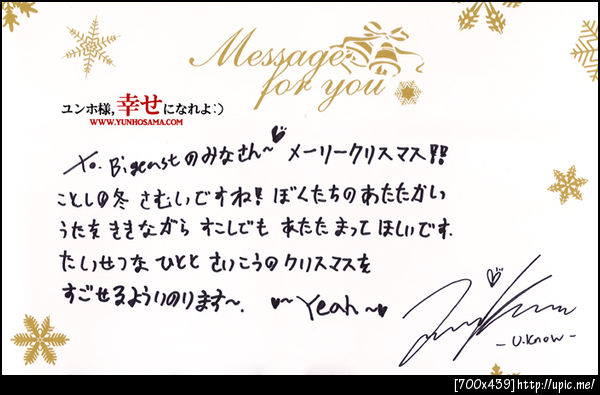 Message
for you
ユンホ様,幸せになれよ:)
WWW.YUNHOSAMA.COM
To. Bigeastのみなさん~♡ メーリークリスマス!!
ことしの冬 さむいですね! ぼくたちのあたたかい
うたを ききながら すこしでも あたたまって ほしいです.
たいせつな ひとと さいこうの クリスマスを
すごせるよういのります~. ♥~Yeah~♥
- U.Know -
[700x459]http://upic.me/